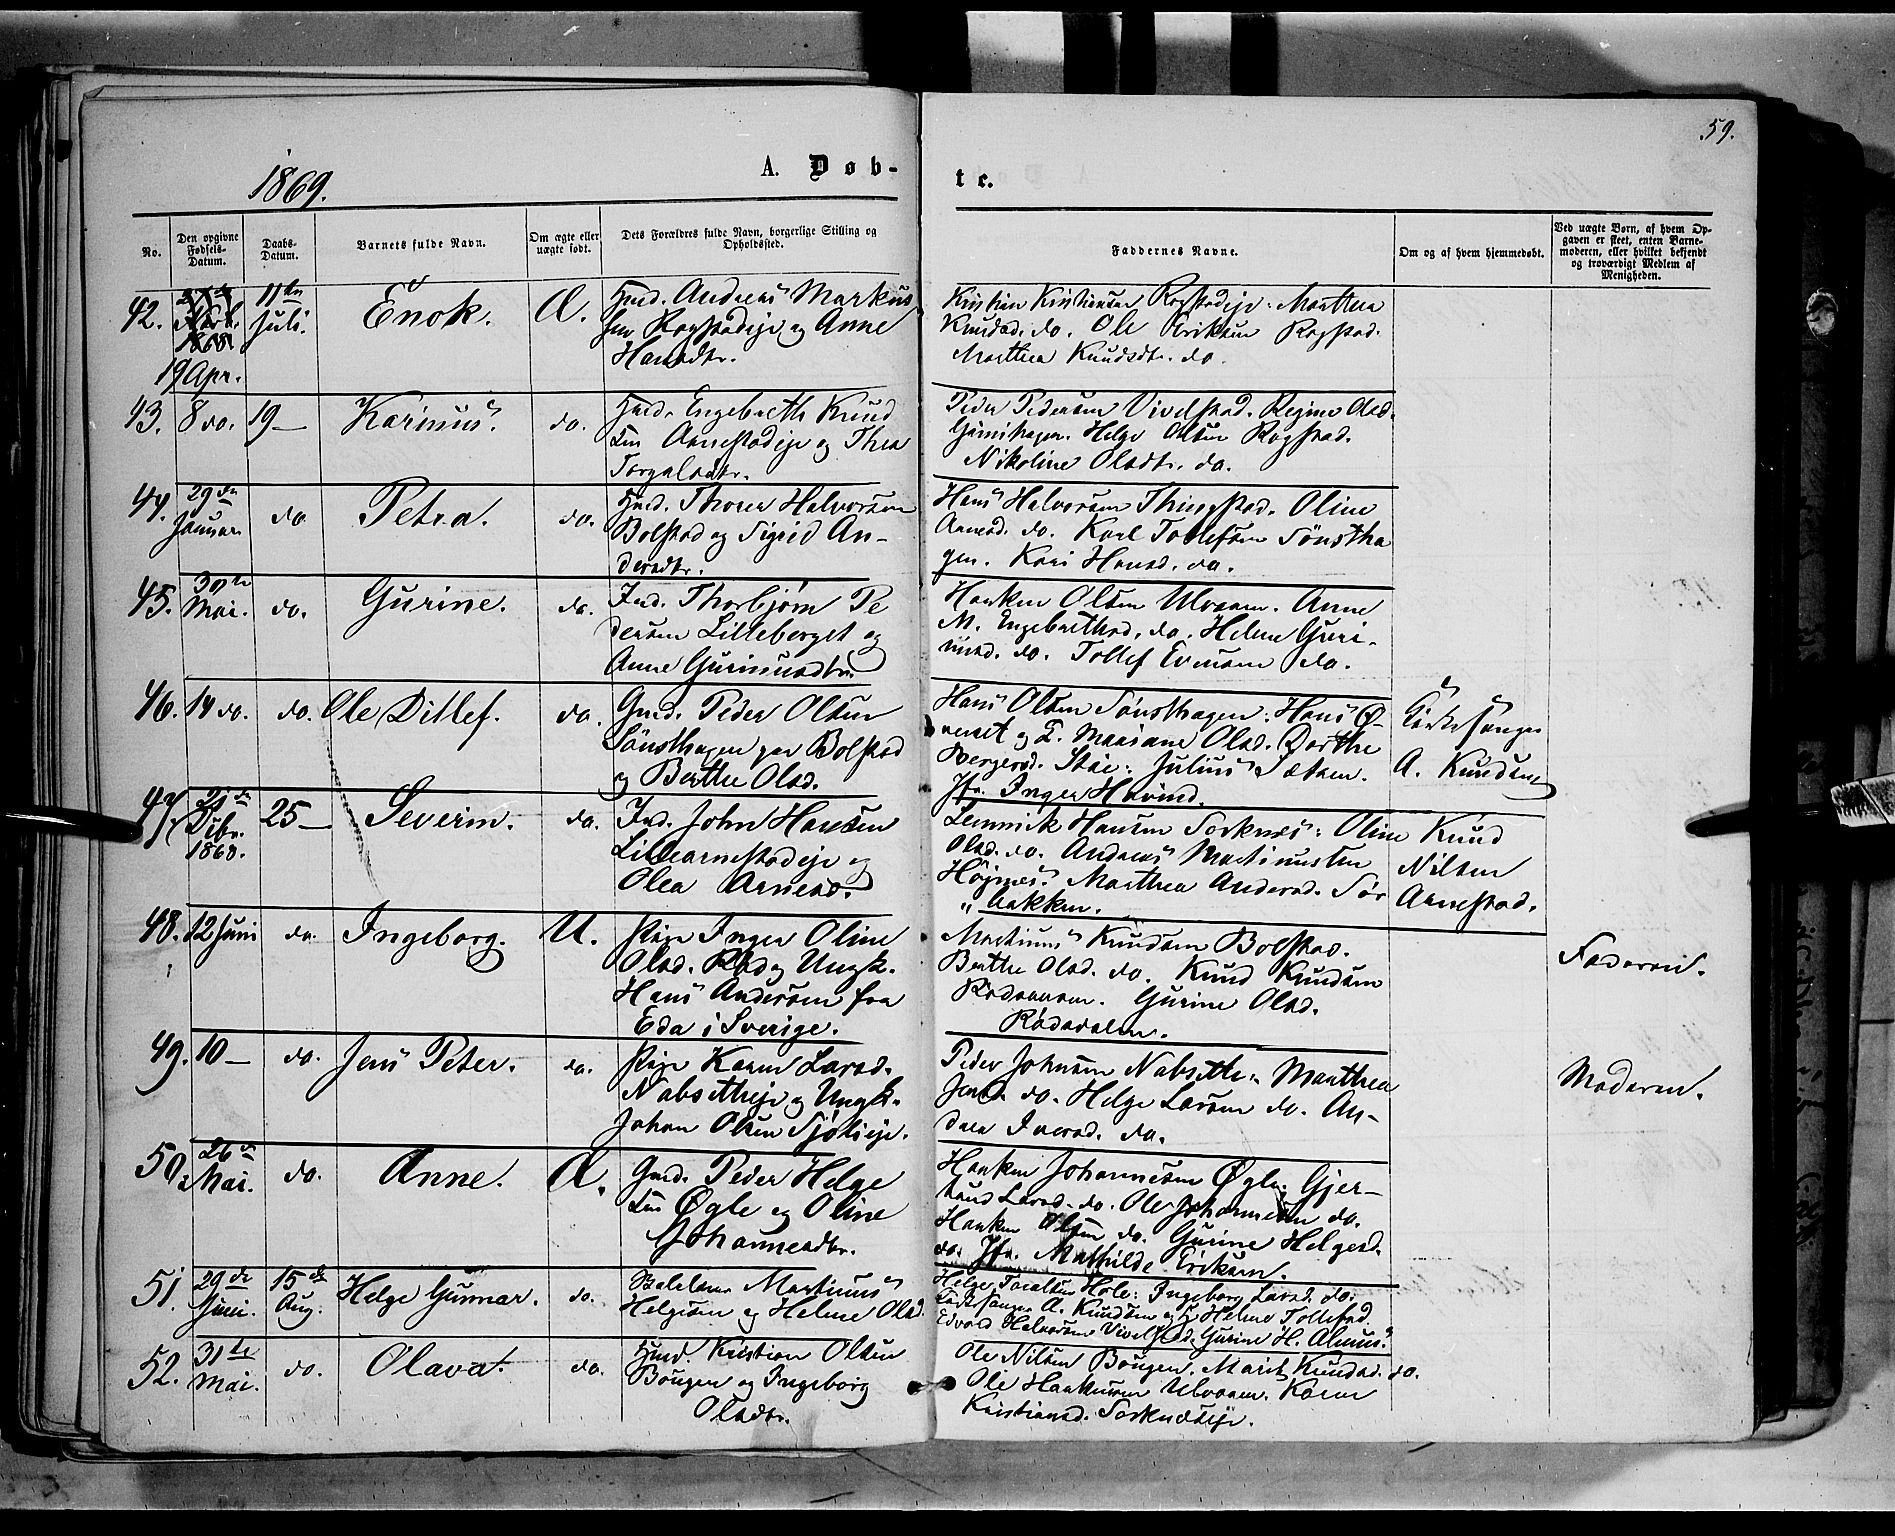 59.
1869.
A. Døb-
te.
No.
Den opgivne Fødsels-Datum.
Daabs-Datum.
Barnets fulde Navn.
Om ægte eller uægte født.
Dets Forældres fulde Navn, borgerlige Stilling og Opholdssted.
Faddernes Navne.
Om og af hvem hjemmedøbt.
Ved uægte Børn, af hvem Opgaven er skeet, enten Barnemoderen, eller hvilket bekjendt og troværdigt Medlem af Menigheden.
42.
1868.
19 Apr.
11te Juli.
Enok.
Æ.
Huusmd. Andreas Markus
sen Rogstadeje og Anne
Hansdtr.
Kristian Kristiansen Rogstadeje. Marthea
Knudsd. do. Ole Eriksen Rogstad.
Marthea Knudsdtr. do.
43.
8 do.
19 —
Karinus.
do.
Huusmd. Engebreth Knud
sen Arnestadeje og Thea
Peder Pedersen Vivelstad. Regine Olsd.
Helge Olsen Rogstad.
Nikoline Olsdtr. do.
44.
29de Januar
do.
Petra.
do.
Thorer Halvorsen
Bolstad og Sigrid An-
dersdtr.
Hans Halvorsen Thingstad. Oline
Arnesd. do. Karl Tollefsen Sønstha
gen. Kari Hansd. do.
45.
30te Mai.
do.
Gurine.
do.
Ind. Thorbjørn Pe
dersen Lilleberget og
Anne
Haaken Olsen Ulvaaen. Anne
M. Engebrethsd. do. Helene Guri-
nusd. do. Tollef Evensen do.
46.
14 do.
do.
Ole Ditlef.
do.
Gmd. Peder Olsen
Sønsthagen paa Bolstad
og Berthe Olsd.
Hans Olsen Sønsthagen. Hans Ø-
verset og F. Mariane Olsd. Dorthe
Bergersd. Stai. Julius Sætren.
Jfr. Inger Havind.
Kirkesanger
A. Knudsen
47.
21de Dcbr. 1868.
25 —
Severin.
do.
Ind. John Hansen
Lillearnestadeje og
Olea Arnesd.
Lennick Hansen Sorknes. Oline
Olsd. do. Andreas Martinussen
Højnes. Marthea Andersd. Sør
bakken.
Knud
Nilsen
Arnestad.
48.
12 Juni
do.
Ingeborg.
U.
Pige Inger Oline
Olsd. Rød og Ungk.
Hans Andersen fra
Eda i Sverige.
Martinus Knudsen Bolstad.
Berthe Olsd. do. Knud Knudsen
Rødsaaen. Gurine Olsd.
Rødsdalen.
Faderen.
49.
10 —
do.
Jens Peter.
do.
Pige Karen Larsd.
Nabsetheje og Ungk.
Johan Olsen Sjølieje.
Peder Johnsen Nabsethe. Marthea
Jensd. do. Helge Larsen do. An-
drea Iversd. do.
Moderen.
50.
26de Mai.
do.
Anne.
Æ.
Gmd. Peder Helge
sen Øgle og Oline
Johannesdtr.
Haaken Johannesen Øgle. Gjer-
traud Larsd. do. Ole Johannesen do.
Haaken Olsen do. Gurine Helgesd.
do. Jfr. Mathilde Eriksen.
51.
29de Juni.
15de Aug.
Helge Gunnar.
do.
Martinus
Helgesen og Helene Olsd.
Helge Hole. Ingeborg Larsd. do.
Kirkesanger A. Knudsen og F. Helene Tollefsd.
Edvard Halvorsen Vivelstad. Gurine H. Almus.
52.
31te Mai.
do.
Olava.
do.
Huusmd. Kristian Olsen
Bougen og Ingeborg
Olsdtr.
Ole Nilsen Bougen. Marit Knudsd. do.
Ole Haakensen Ulvaaen. Karen
Kristiansd. Sorkneseje.